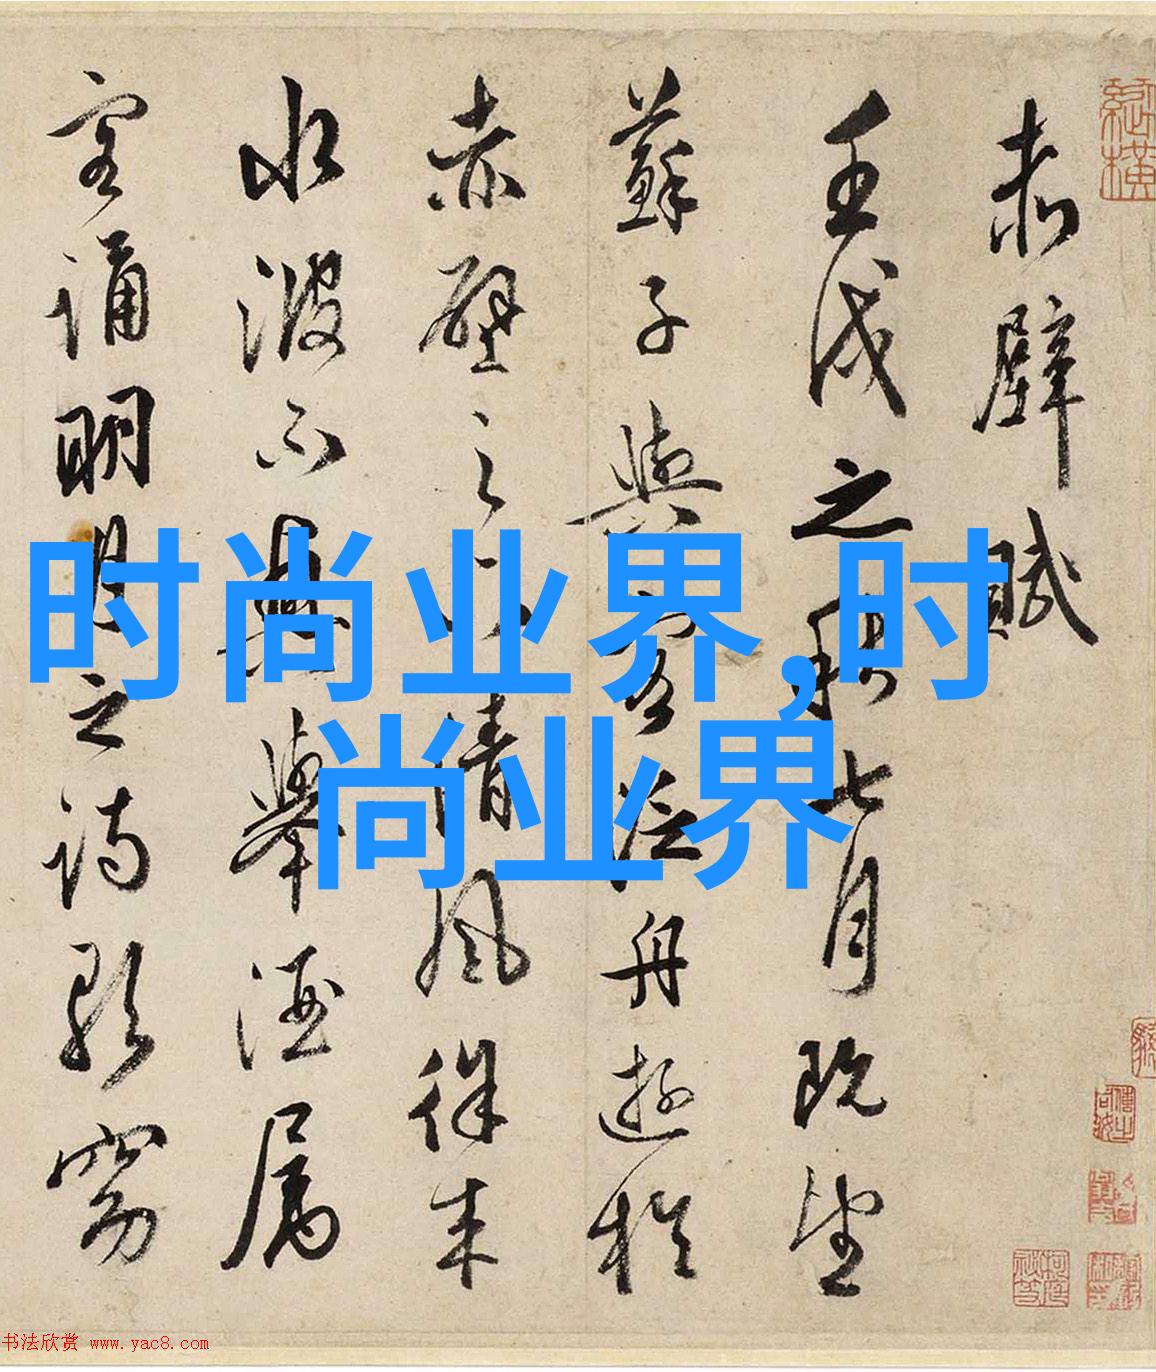 赤壁賦
壬戌之秋七月既望
蘇子與客泛舟遊於
赤壁之下清風徐来
水波不興舉酒属
客诵明月之诗歌窈
时尚业界,时
尚业界
縱橫
书法欣赏 www.yac8.com